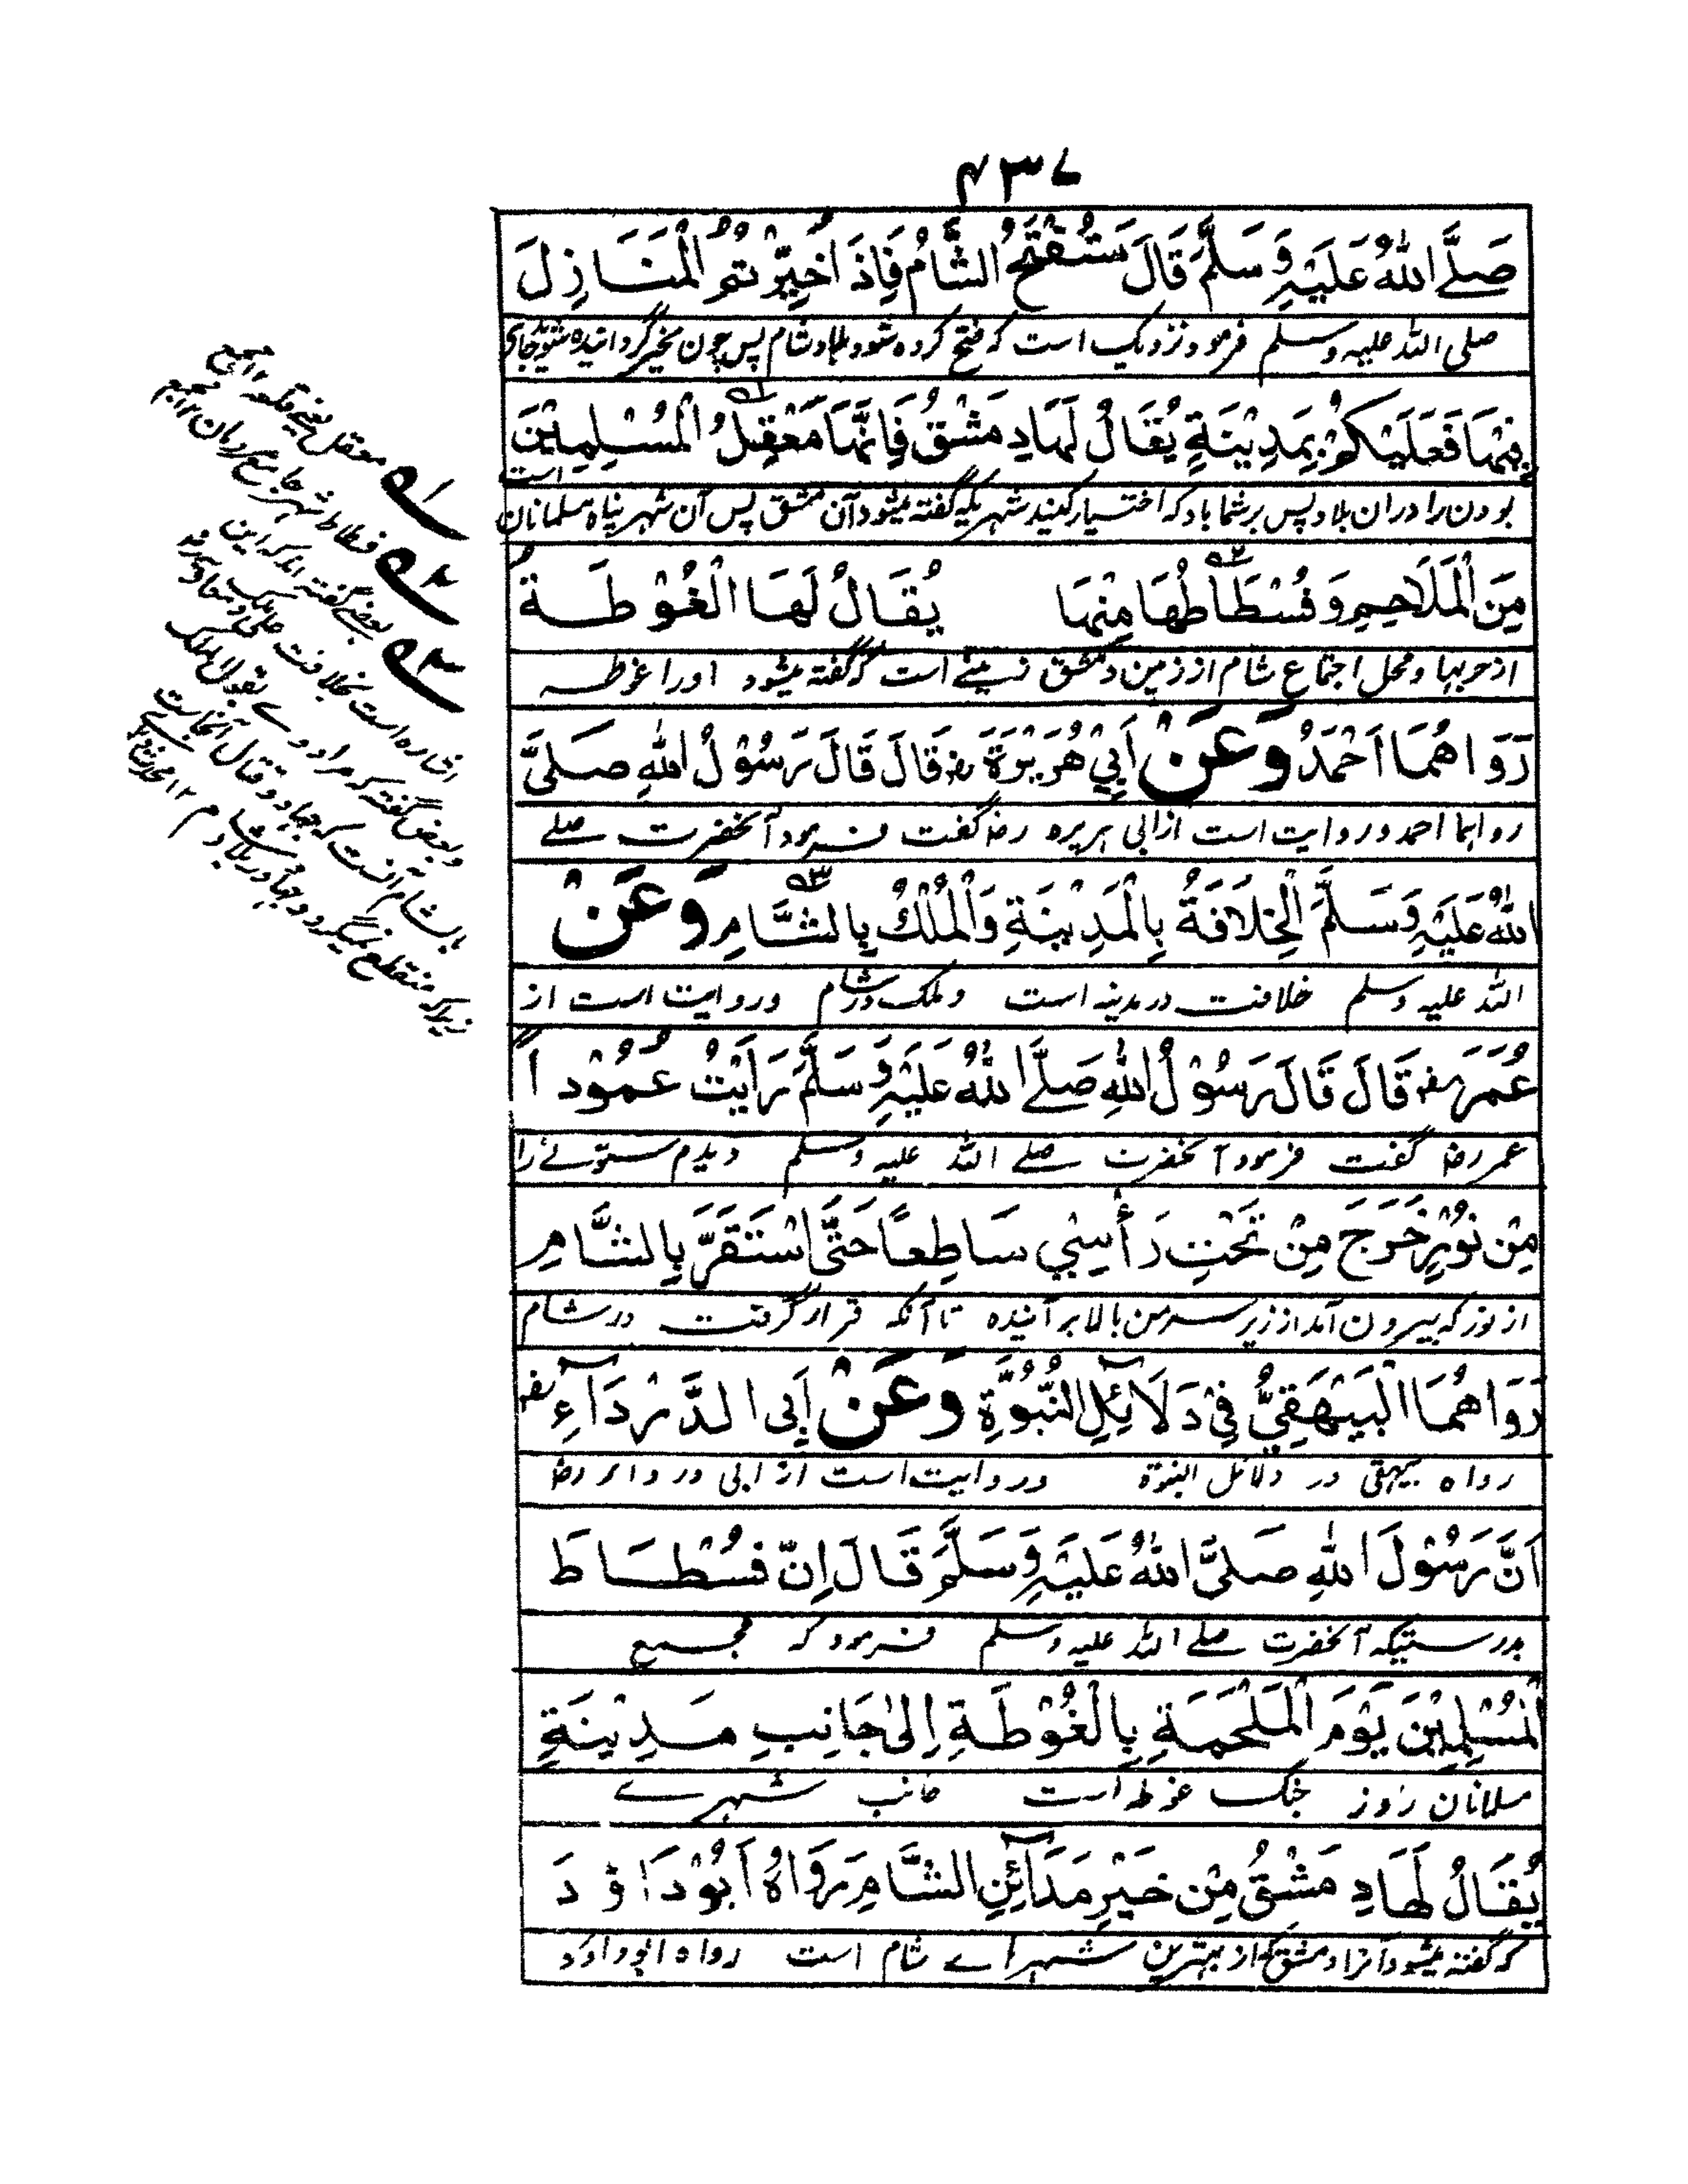 ۴۳۷
صَلَّے اللّٰهُ عَلَيْهِ وَسَلَّمَ قَالَ سَتُفْتَحُ الشَّامُ فَاِذَا خُيِّرْتُمُ الْمَنَازِلَ
صلی اللہ علیہ وسلم فرمود نزدیک است کہ فتح کردہ شود بلاد شام پس چون مخیر گردانیدہ شوید جای
فِيْهَا فَعَلَيْكُمْ بِمَدِيْنَةٍ يُقَالُ لَهَا دِمَشْقُ فَاِنَّهَا مَعْقِلُ الْمُسْلِمِيْنَ
بودن را دران بلاد پس بر شما باد کہ اختیار کنید شہریکہ گفتہ میشود آن دمشق پس آن شہر پناہ مسلمانان است
مِنَ الْمَلَاحِمِ وَفُسْطَاطُهَا مِنْهَا يُقَالُ لَهَا الْغُوْطَةُ
از حربہا و محل اجتماع شام از زمین دمشق زمینے است کہ گفتہ میشود اورا غوطہ
رَوَاهُمَا اَحْمَدُ وَعَنْ اَبِيْ هُرَيْرَةَ رض قَالَ قَالَ رَسُوْلُ اللّٰهِ صَلَّى
رواہما احمد و روایت است از ابی ہریرہ رض گفت فرمود آنحضرت صلے
اللّٰهُ عَلَيْهِ وَسَلَّمَ الْخِلَافَةُ بِالْمَدِيْنَةِ وَالْمُلْكُ بِالشَّامِ وَعَنْ
اللہ علیہ وسلم خلافت در مدینہ است و ملک در شام و روایت است از
عُمَرَ رض قَالَ قَالَ رَسُوْلُ اللّٰهِ صَلَّے اللّٰهُ عَلَيْهِ وَسَلَّمَ رَاَيْتُ عُمُوْدًا
عمر رض گفت فرمود آنحضرت صلے اللہ علیہ وسلم دیدم ستونے را
مِنْ نُوْرٍ خَرَجَ مِنْ تَحْتِ رَأْسِيْ سَاطِعًا حَتَّى اسْتَقَرَّ بِالشَّامِ
از نور کہ بیرون آمد از زیر سر من بالا برآئیندہ تا آنکہ قرار گرفت در شام
رَوَاهُمَا الْبَيْهَقِيُّ فِيْ دَلَآئِلِ النُّبُوَّةِ وَعَنْ اَبِى الدَّرْدَآءِ رض
رواہ بیہقی در دلائل النبوۃ و روایت است از ابی درداء رض
اَنَّ رَسُوْلَ اللّٰهِ صَلَّى اللّٰهُ عَلَيْهِ وَسَلَّمَ قَالَ اِنَّ فُسْطَاطَ
بدرستیکہ آنحضرت صلے اللہ علیہ وسلم فرمود کہ مجمع
الْمُسْلِمِيْنَ يَوْمَ الْمَلْحَمَةِ بِالْغُوْطَةِ اِلٰى جَانِبِ مَدِيْنَةٍ
مسلمانان روز جنگ غوطہ است جانب شہرے
يُقَالُ لَهَا دِمَشْقُ مِنْ خَيْرِ مَدَآئِنِ الشَّامِ رَوَاهُ اَبُوْ دَاوٗدَ
کہ گفتہ میشود آنرا دمشق کہ از بہترین شہرہاے شام است رواہ ابوداؤد
۱ معقل یعنے قلعہ ۱۲ مجمع
۲ فسطاط شہر جامع مردمان ۱۲ مجمع
۳ بعضے گفتہ اند کہ این
اشارہ است بخلافت علی و معاویہ
و بعض گفتہ کہ مراد وے بقول الملک
بالشام آنست کہ جہاد و قتال آنجاست
زیراکہ منقطع نمیگردد جہاد در بلاد شام ۱۲